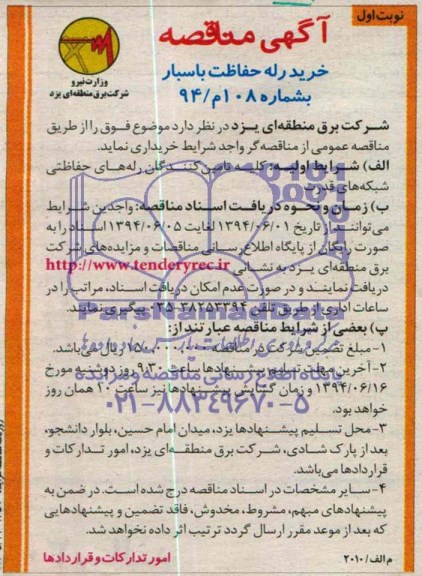 نوبت اول
آگهی مناقصه
خرید رله حفاظت باسبار
بشماره ۱۰۸م/۹۴
وزارت نیرو
شرکت برق منطقه‌ای یزد
شرکت برق منطقه‌ای یزد در نظر دارد موضوع فوق را از طریق
مناقصه عمومی از مناقصه‌گر واجد شرایط خریداری نماید.
الف) شرایط اولیه: کلیه تامین‌کنندگان رله‌های حفاظتی
شبکه‌های قدرت
ب) زمان و نحوه دریافت اسناد مناقصه: واجدین شرایط
می‌توانند از تاریخ ۱۳۹۴/۰۶/۰۱ لغایت ۱۳۹۴/۰۶/۰۵ اسناد را به
صورت رایگان از پایگاه اطلاع‌رسانی مناقصات و مزایده‌های شرکت
برق منطقه‌ای یزد به نشانی http://www.tenderyrec.ir
دریافت نمایند و در صورت عدم امکان دریافت اسناد، مراتب را در
ساعات اداری از طریق تلفن ۳۸۲۵۳۳۹۴-۰۳۵ پیگیری نمایند.
پ) بعضی از شرایط مناقصه عبارتند از:
۱- مبلغ تضمین شرکت در مناقصه ریال می‌باشد.
۲- آخرین مهلت تسلیم پیشنهادها ساعت ۹:۳۰ روز دوشنبه مورخ
۱۳۹۴/۰۶/۱۶ و زمان گشایش پیشنهادها نیز ساعت ۱۰ همان روز
خواهد بود.
۳- محل تسلیم پیشنهادها یزد، میدان امام حسین، بلوار دانشجو،
بعد از پارک شادی، شرکت برق منطقه‌ای یزد، امور تدارکات و
قراردادها می‌باشد.
۴- سایر مشخصات در اسناد مناقصه درج شده است. در ضمن به
پیشنهادهای مبهم، مشروط، مخدوش، فاقد تضمین و پیشنهادهایی
که بعد از موعد مقرر ارسال گردد ترتیب اثر داده نخواهد شد.
م الف/۲۰۱۰
امور تدارکات و قراردادها
ParsNamadData
پایگاه اطلاع رسانی مناقصه و مزایده
۰۲۱-۸۸۳۴۹۶۷۰-۵